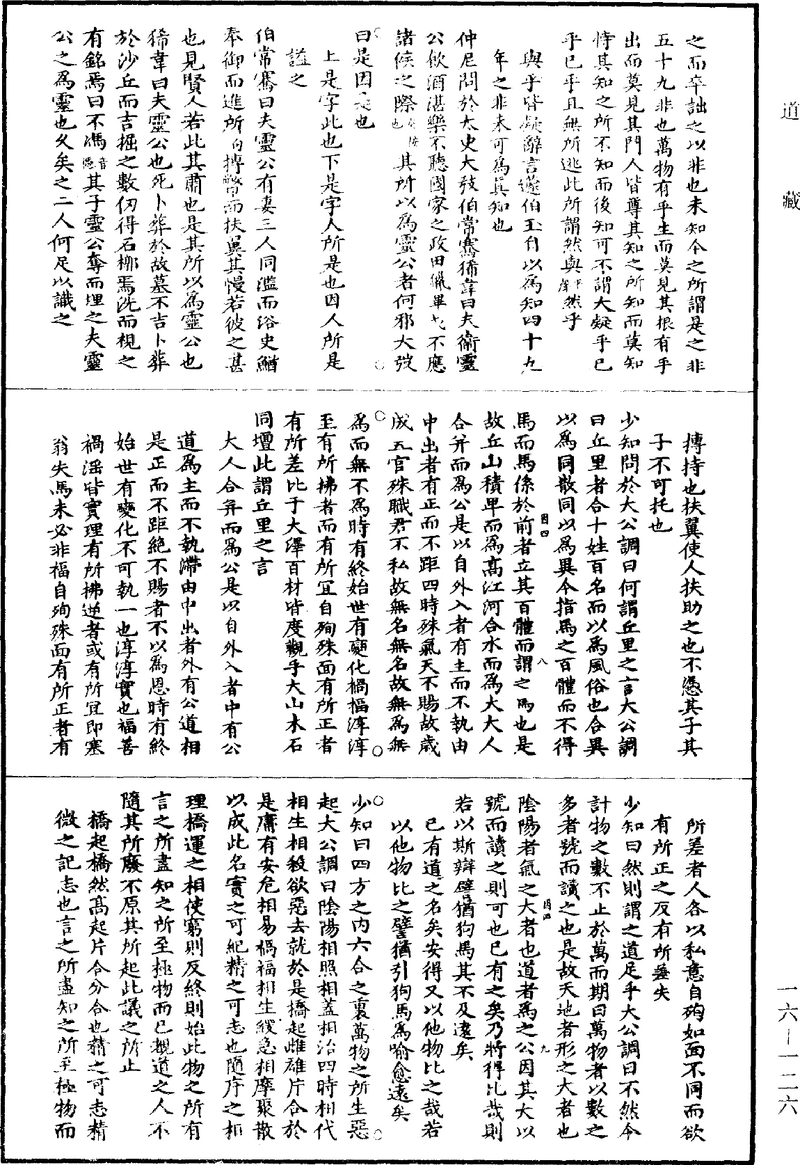 道藏
之而卒詘之以非也未知今之所謂是之非
五十九非也萬物有乎生而莫見其根有乎
出而莫見其門人皆尊其知之所知而莫知
恃其知之所不知而後知可不謂大疑乎已
乎已乎且無所逃此所謂然與然乎
與乎皆疑辭言蘧伯玉自以為知四十九
年之非未可為真知也
仲尼問於太史大弢伯常騫狶韋曰夫衛靈
公飲酒湛樂不聽國家之政田獵畢弋不應
諸侯之際其所以為靈公者何邪大弢
曰是因是也
上是字此也下是字人所是也因人所是
謚之
伯常騫曰夫靈公有妻三人同濫而浴史鰌
奉御而進所搏幣而扶翼其慢若彼之甚
也見賢人若此其肅也是其所以為靈公也
狶韋曰夫靈公也死卜葬於故墓不吉卜葬
於沙丘而吉掘之數仞得石槨焉洗而視之
有銘焉曰不馮音憑其子靈公奪而埋之夫靈
公之為靈也久矣之二人何足以識之
搏持也扶翼使人扶助之也不憑其子其
子不可托也
少知問於大公調曰何謂丘里之言大公調
曰丘里者合十姓百名而以為風俗也合異
以為同散同以為異今指馬之百體而不得
馬而馬係於前者立其百體而謂之馬也是
故丘山積卑而為高江河合水而為大大人
合并而為公是以自外入者有主而不執由
中出者有正而不距四時殊氣天不賜故歲
成五官殊職君不私故無名無名故無為無
為而無不為時有終始世有變化禍福淳淳
至有所拂者而有所宜自殉殊面有所正者
有所差比于大澤百材皆度觀乎大山木石
同壇此謂丘里之言
大人合并而為公是以自外入者中有公
道為主而不執滯由中出者外有公道相
是正而不距絕不賜者不以為恩時有終
始世有變化不可執一也淳淳實也福善
禍淫皆實理有所拂逆者或有所宜即塞
翁失馬未必非福自殉殊面有所正者有
所差者人各以私意自殉如面不同而欲
有所正之反有所差失
少知曰然則謂之道足乎大公調曰不然今
計物之數不止於萬而期曰萬物者以數之
多者號而讀之也是故天地者形之大者也
陰陽者氣之大者也道者為之公因其大以
號而讀之則可也已有之矣乃將得比哉則
若以斯辯譬猶狗馬其不及遠矣
已有道之名矣安得又以他物比之哉若
以他物比之譬猶引狗馬為喻愈遠矣
少知曰四方之內六合之裏萬物之所生惡
起大公調曰陰陽相照相蓋相治四時相代
相生相殺欲惡去就於是橋起雌雄片合於
是庸有安危相易禍福相生緩急相摩聚散
以成此名實之可紀精之可志也隨序之相
理橋運之相使窮則反終則始此物之所有
言之所盡知之所至極物而已觀道之人不
隨其所廢不原其所起此議之所止
橋起橋然高起片合分合也精之可志精
微之記志也言之所盡知之所至極物而
一六—一二六